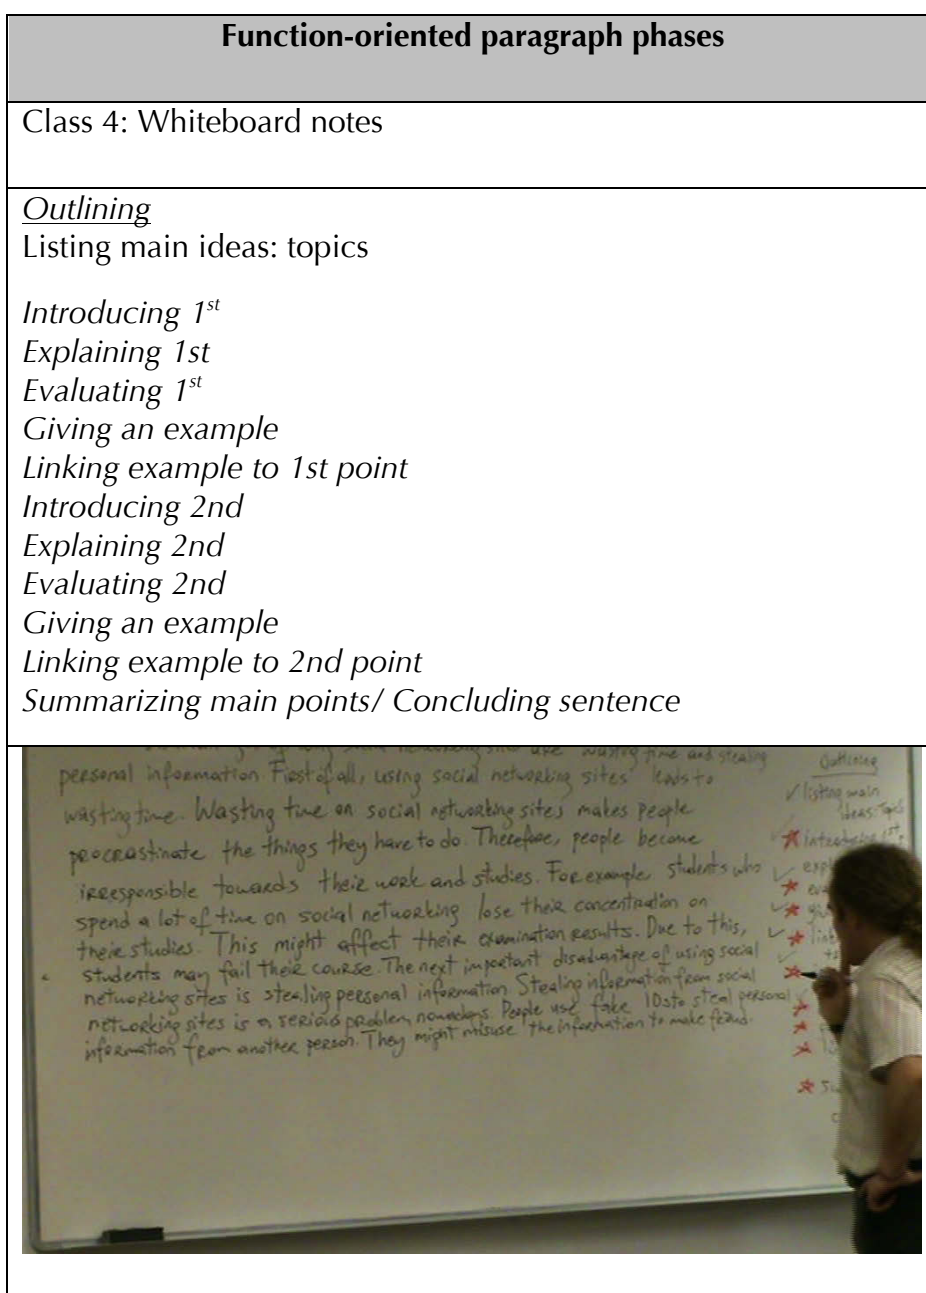 Function-oriented paragraph phases
Class 4: Whiteboard notes
Outlining
Listing main ideas: topics
Introducing 1st
Explaining 1st
Evaluating 1st
Giving an example
Linking example to 1st point
Introducing 2nd
Explaining 2nd
Evaluating 2nd
Giving an example
Linking example to 2nd point
Summarizing main points/ Concluding sentence
networking sites are wasting time and stealing
personal information. First of all, using social networking sites leads to
wasting time. Wasting time on social networking sites makes people
procrastinate the things they have to do. Therefore, people become
irresponsible towards their work and studies. For example, students who
spend a lot of time on social networking lose their concentration on
their studies. This might affect their examination results. Due to this,
students may fail their course. The next important disadvantage of using social
networking sites is stealing personal information. Stealing information from social
networking sites is a serious problem nowadays. People use fake IDs to steal personal
information from another person. They might misuse the information to make fraud.
Outlining
listing main
ideas: Topics
introducing 1st